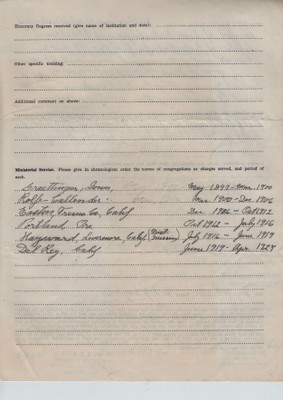 Honorary Degrees received (give name of institution and date):
Other specific training
Additional comment on above:
Ministerial Service. Please give in chronological order the names of congregations or charges served, and period of
each.
Graettinger, Iowa, May 1899 - Mar. 1900
Rolfe - Callender Mar. 1900 - Dec. 1906
Easton, Fresno Co, Calif Dec 1906 - Oct 1912
Portland Ore Oct 1912 - July 1916
Hayward, Livermore, Calif July 1916 - June 1919
Del Rey, Calif June 1919 - Apr.